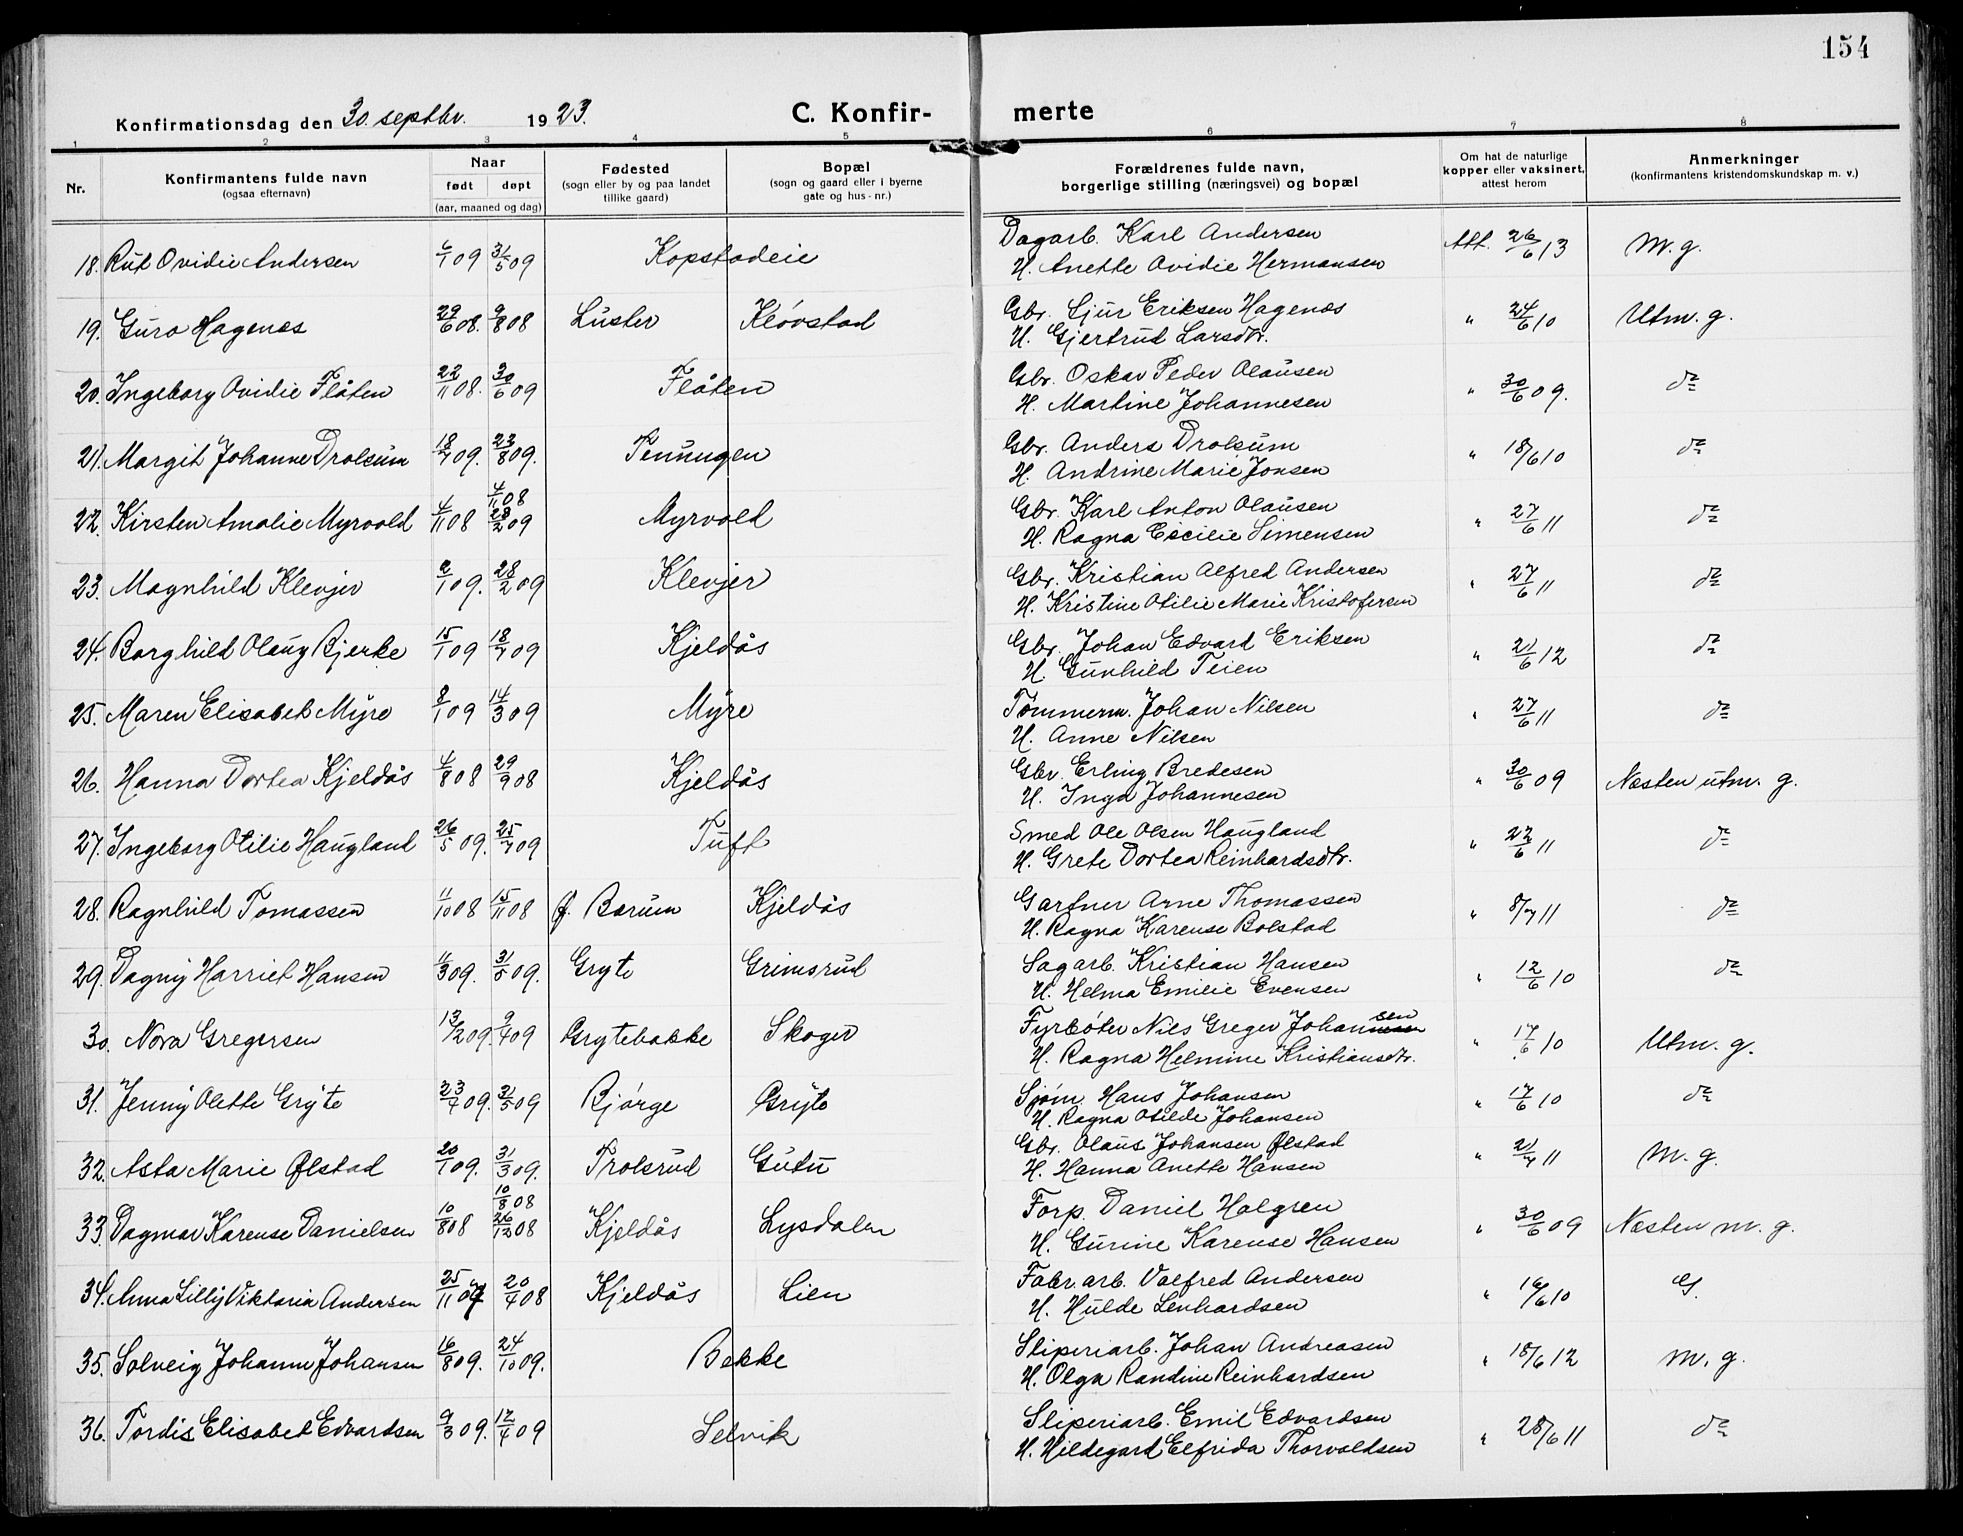 154
Konfirmationsdag den 30. septbr. 1923.
C. Konfir- merte
1 2 3 4 5 6 7 8
Nr.
Konfirmantens fulde navn
(ogsaa efternavn)
Naar
født døpt
(aar, maaned og dag)
Fødested
(sogn eller by og paa landet
tillike gaard)
Bopæl
(sogn og gaard eller i byerne
gate og hus-nr.)
Forældrenes fulde navn,
borgerlige stilling (næringsvei) og bopæl
Om hat de naturlige
kopper eller vaksinert,
attest herom
Anmerkninger
(konfirmantens kristendomskundskap m. v.)
18. Rut Ovidie Andersen 6/1 09 31/5 09 Kopstadeie Dagarb. Karl Andersen Att. 26/6 13 M. g.
H. Anette Ovidie Hermansen
19. Guro Hagenæs 29/6 08. 9/8 08 Luster Kløvstad Gbr. Sjur Eriksen Hagenæs " 24/6 10 Utm. g.
H. Gjertrud Larsdtr.
20. Ingeborg Ovidie Flåten 22/11 08. 30/6 09 Flåten Gbr. Oskar Peder Olausen " 30/6 09. do
H. Martine Johannesen
21. Margit Johanne Drolsum 18/7 09. 22/8 09. Tenungen Gbr. Anders Drolsum " 18/6 10 do
H. Andrine Marie Jonsen
4/11 08
22. Kirsten Amalie Myrvold 4/11 08 28/2 09 Myrvold Gbr. Karl Anton Olausen " 27/6 11 do
H. Ragna Cecilie Simensen
23. Magnhild Klevjer 2/1 09. 28/2 09 Klevjer Gbr. Kristian Alfred Andersen " 27/6 11 do
H. Kristine Otilie Marie Kristofersen
24. Borghild Olaug Bjerke 15/1 09 18/7 09 Kjeldås Gbr. Johan Edvard Eriksen " 21/6 12 do
H. Gunhild Teien
25. Maren Elisabet Myre 8/1 09 14/3 09 Myre Tømmerm. Johan Nilsen " 27/6 11 do
H. Anne Nilsen
26. Hanna Dortea Kjeldås 4/8 08 29/9 08 Kjeldås Gbr. Erling Bredesen " 30/6 09 Næsten utm. g.
H. Inga Johannesen
27. Ingeborg Otilie Haugland 26/5 09. 25/7 09 Tuft Smed Ole Olsen Haugland " 22/6 11 do
H. Grete Dortea Reinhardsdtr.
28. Ragnhild Tomassen 11/10 08 15/11 08 Ø. Bærum Kjeldås Gartner Arne Thomassen " 8/7 11 do
H. Ragna Karense Bolstad
29. Dagny Harriet Hansen 11/3 09. 31/5 09. Gryte Grimsrud Sagarb. Kristian Hansen " 12/6 10 do
H. Helma Emilie Evensen
30. Nora Gregersen 13/2 09. 9/4 09 Grytebakke Skoger Fyrbøter Nils Greger Johansen " 17/6 10 Utm. g.
H. Ragna Helmine Kristiansdtr.
31. Jenny Olette Gryte 23/4 09. 31/5 09 Bjørge Gryte Sjøm. Hans Johansen " 17/6 10 do
H. Ragna Otilde Johansen
32. Asta Marie Ølstad 20/1 09. 31/3 09. Trolsrud Gutu Gbr. Olaus Johansen Ølstad " 21/7 11 M. g.
H. Hanna Anette Hansen
10/8 08
33. Dagmar Karense Danielsen 10/8 08 26/12 08 Kjeldås Lysdalen Forp. Daniel Holgren " 30/6 09 Næsten m. g.
H. Gurine Karense Hansen
34. Anna Lilly Viktoria Andersen 25/11 07 20/4 08 Kjeldås Lien Fabr.arb. Valfred Andersen " 16/6 10 G.
H. Hulde Lenhardsen
35. Solveig Johanne Johansen 16/8 09. 24/10 09. Bekke Sliperiarb. Johan Andreasen " 18/6 12 m. g.
H. Olga Randine Reinhardsen
36. Tordis Elisabet Edvardsen 9/3 09. 12/4 09 Selvik Sliperiarb. Emil Edvardsen " 28/6 11 do
H. Hildegard Elfrida Thorvaldsen